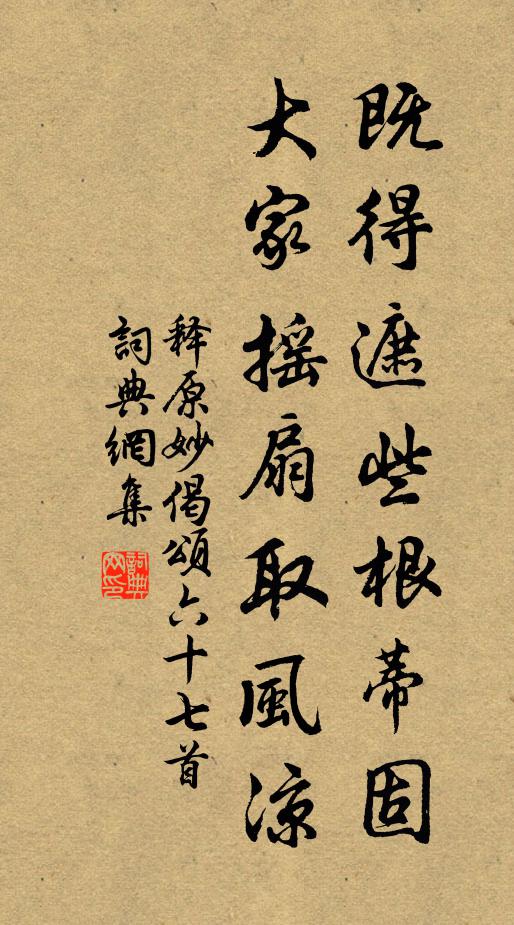 既得遮些根蒂固
大家摇扇取風凉
释原妙偈頌六十七首
詞典網集
詞典
网印